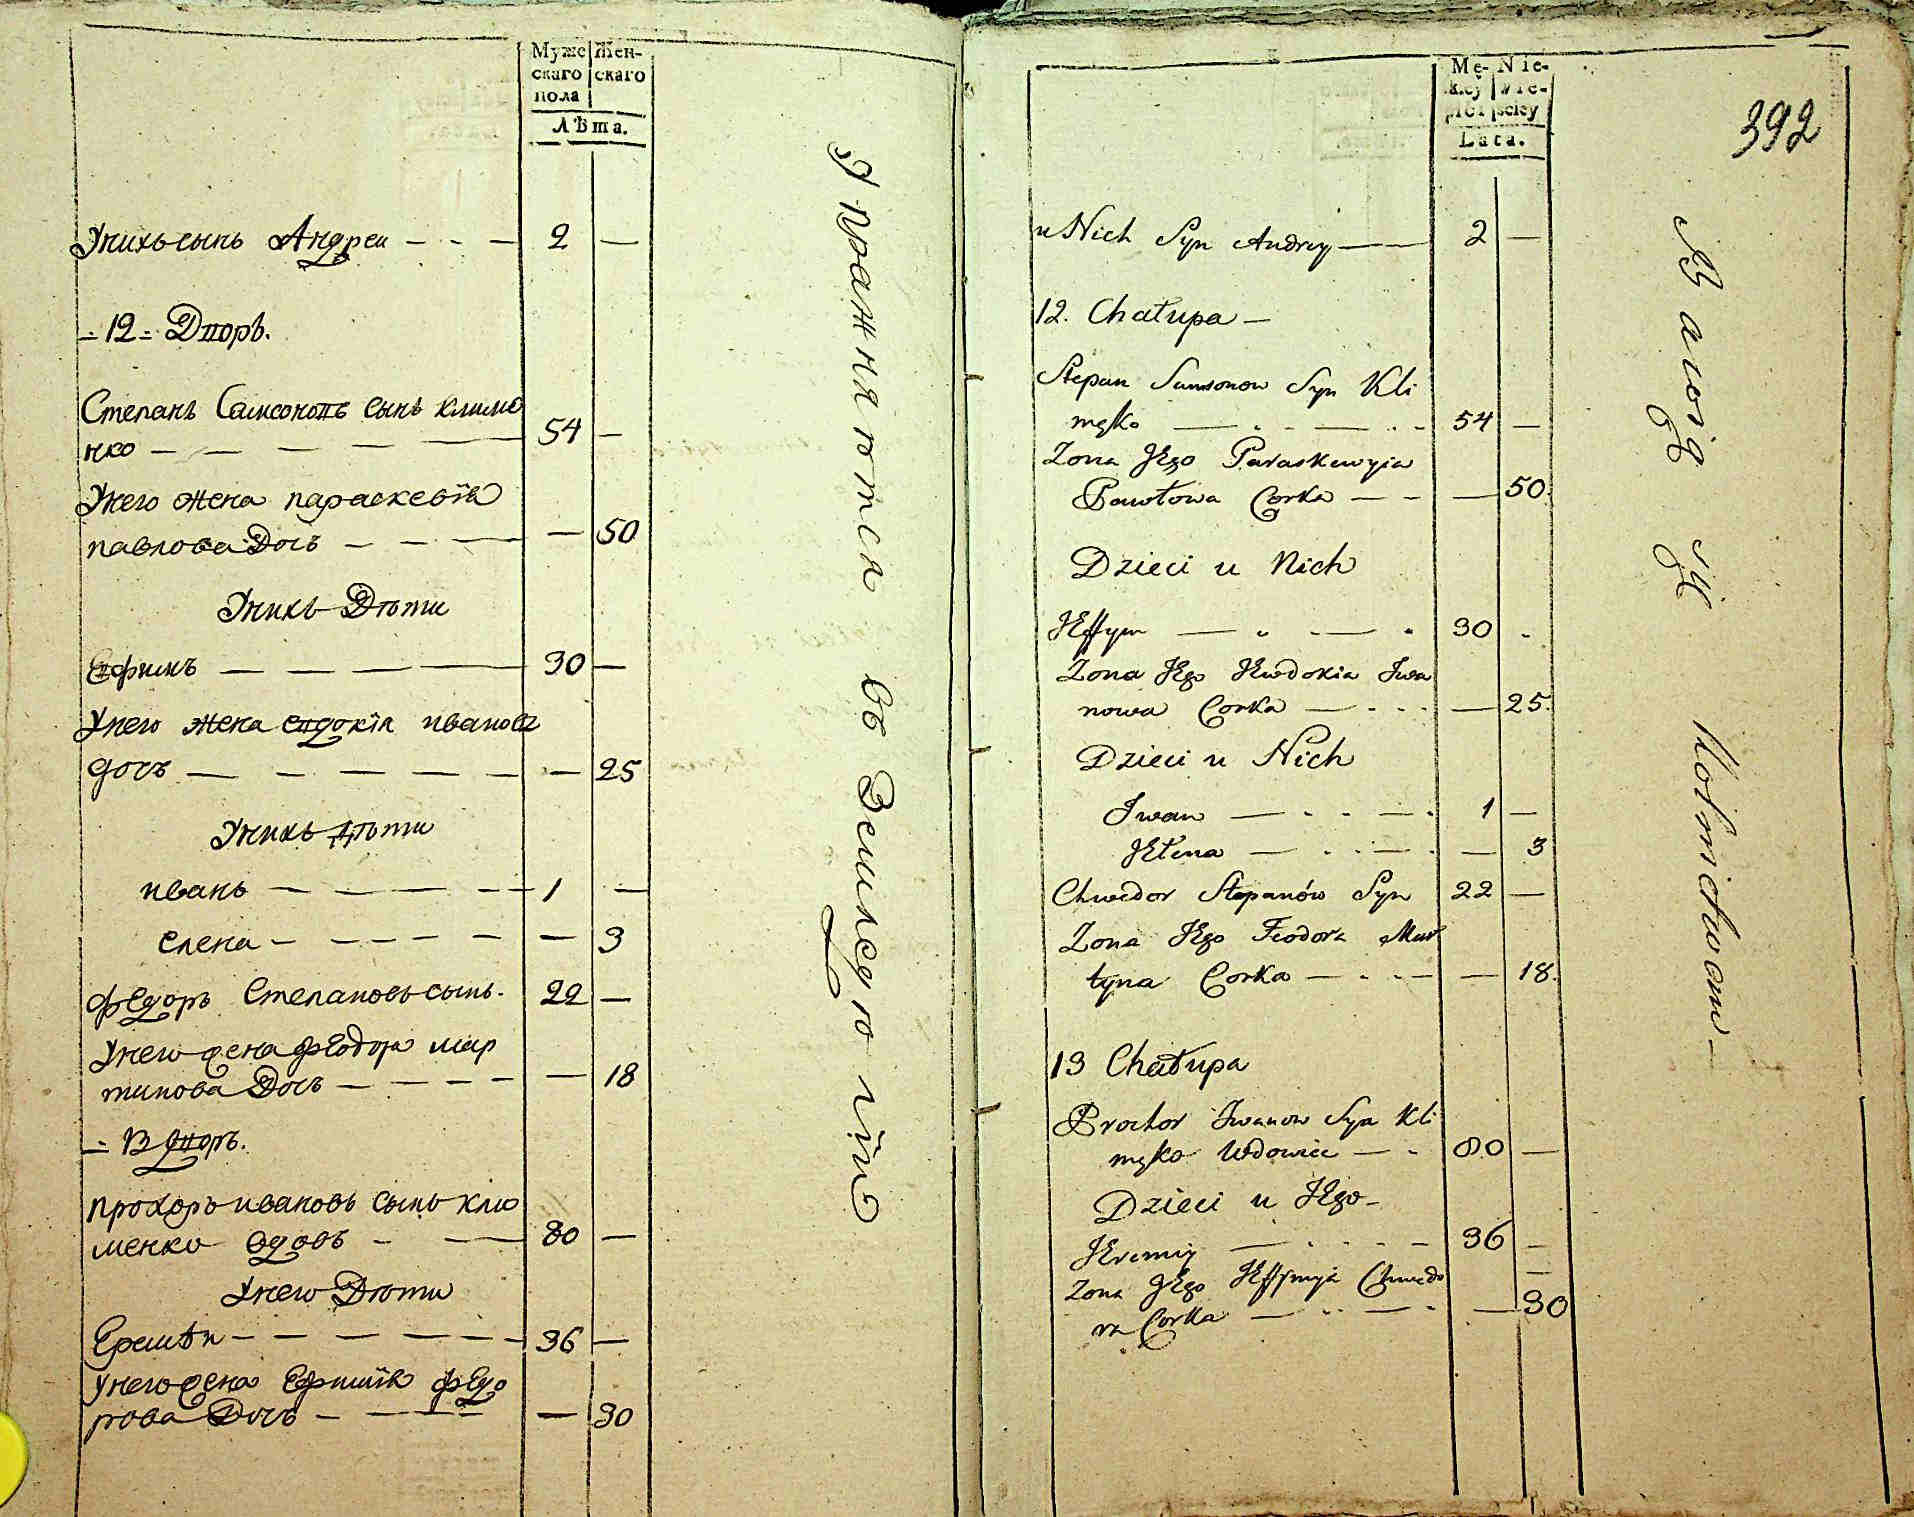 Муже Жен-
скаго скаго
пола
Лѣта.
Унихъ сынъ Андреи - - - 2 —
= 12 = Дворъ.
Степанъ Самсоновъ сынъ климе
нко — — — — — 54 —
Унего жена параскевія
павлова Дочь — — — — — 50
Унихъ Дѣти
Ефимъ — — — — 30 —
Унего жена евдокія иванова
дочь — — — — — — — 25
Унихъ дѣти
иванъ — — — — — 1 —
елена — — — — — — 3
федоръ Степановъ сынъ. 22 —
Унего жена феодора мар
тинова Дочь — — — — — 18
= 13 дворъ.
прохоръ ивановъ сынъ кли
менко вдовъ - — 80 —
Унего Дѣти
Еремѣи — — — — — — 36 —
Унего жена Ефимія федо
рова Дочь — — — — — 30
Упражняются въ Земледѣліи
Mę- Nie-
skiey wie-
płci sciey
Lata.
392
u Nich Syn Andrey — — 2 —
12. Chałupa —
Stepan Samsonow Syn Kli
męko — - - — - - 54 —
Zona Jego Paraskewyia
Pawłowa Corka — — — 50.
Dzieci u Nich
Jeffym — - - — - 30 -
Zona Jego Jewdokia Iwa
nowa Corka — - - - — 25.
Dzieci u Nich
Iwan — - - — - 1 —
Jełena — - - — - — 3
Chwedor Stepanów Syn 22 —
Zona Jego Feodora Mar
tyna Corka — - - — — 18.
13 Chałupa
Prochor Iwanow Syn Kli
męko Wdowiec — - 80 —
Dzieci u Jego —
Jeremiy — - - - — 36 —
Zona Jego Jeffymija Chwedo
ra Corka — - - — - — 30
Bawią się Rolnictwem —